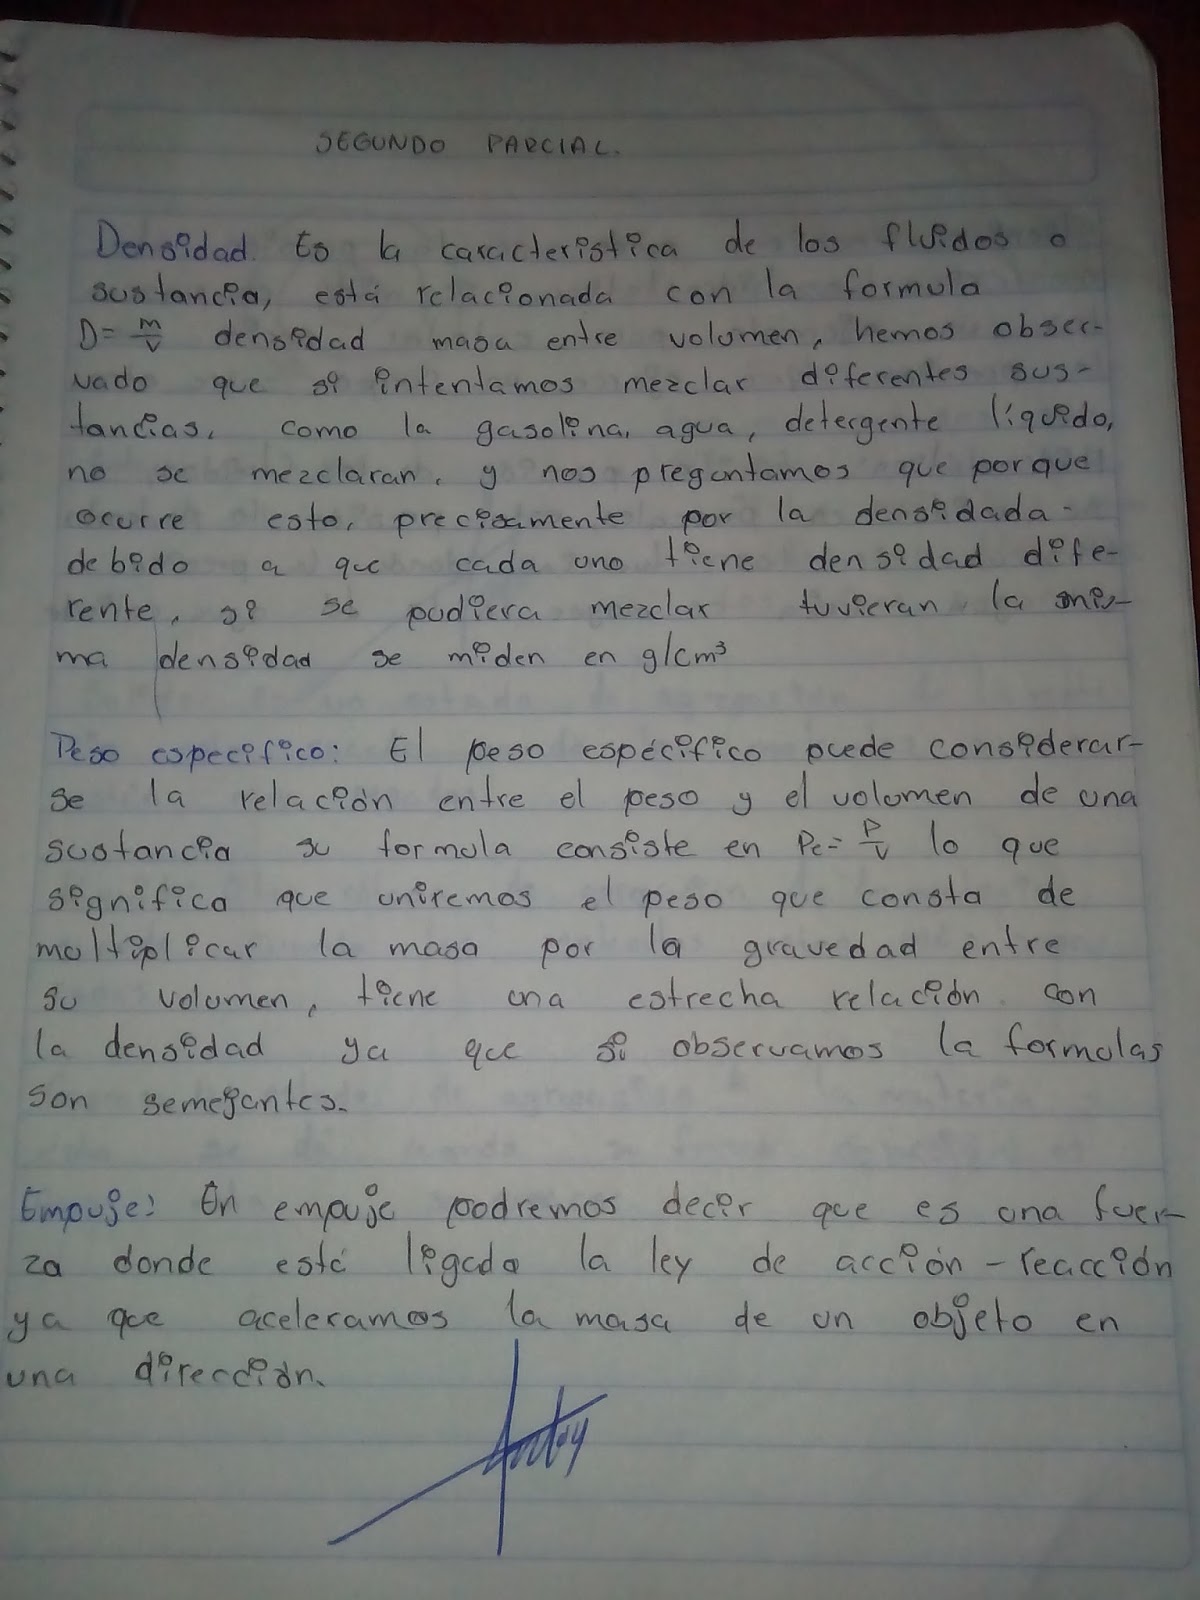 SEGUNDO PARCIAL.
Densidad. Es la caracteristica de los fluidos o
sustancia, está relacionada con la formula
D= m/v densidad masa entre volumen, hemos obser-
vado que si intentamos mezclar diferentes sus-
tancias, como la gasolina, agua, detergente líquido,
no se mezclaran, y nos preguntamos que porque
ocurre esto, precisamente por la densidada-
debido a que cada uno tiene densidad dife-
rente, si se pudiera mezclar tuvieran la mis-
ma densidad se miden en g/cm³
Peso especifico: El peso espécifico puede considerar-
se la relación entre el peso y el volumen de una
sustancia su formula consiste en Pe= P/V lo que
significa que uniremos el peso que consta de
multiplicar la masa por la gravedad entre
su volumen, tiene una estrecha relación con
la densidad ya que si observamos la formulas
son semejantes.
Empuje: En empuje podremos decir que es una fuer-
za donde está ligado la ley de acción - reacción
ya que aceleramos la masa de un objeto en
una dirección.